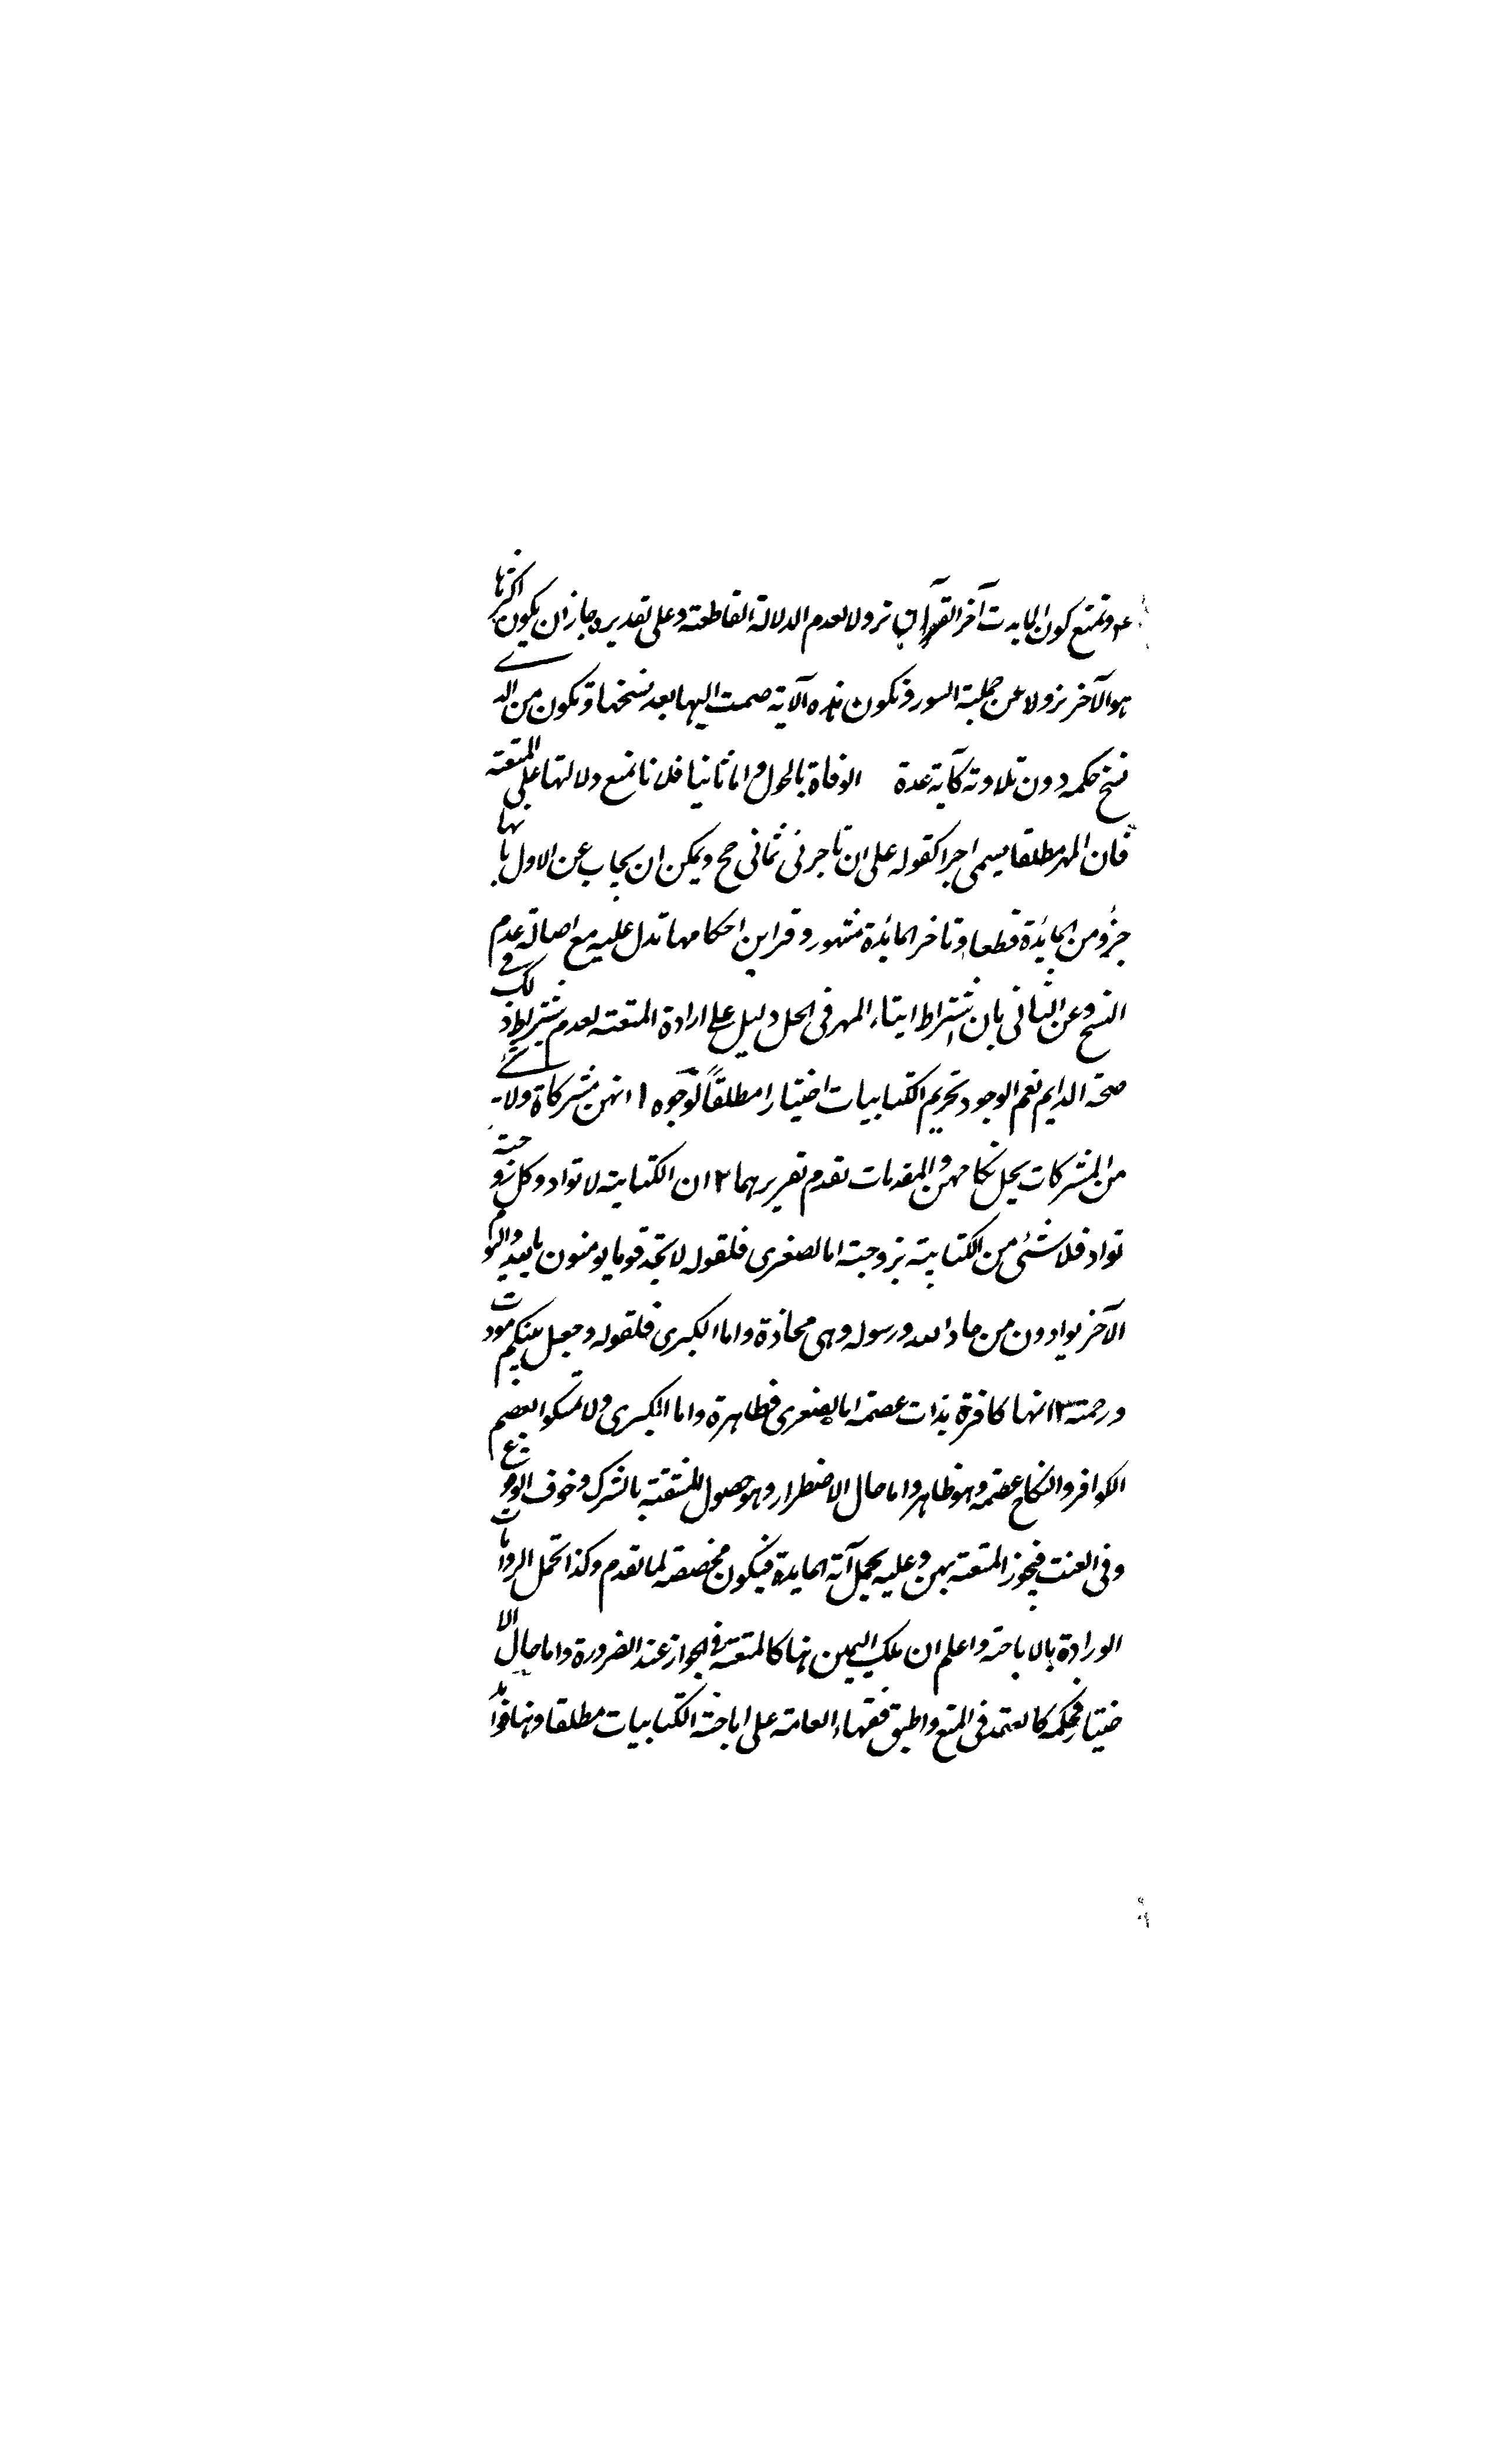 ونمنع كون المايدة آخر القرآن نزولا لعدم الدلالة القاطعة وعلى تقديره جاز ان يكون اكثرها
هو الآخر نزولا عن جملة السور فيكون هذه الآية ضمت اليها بعد نسخها وتكون من الذى
نسخ حكمه دون تلاوته كآية عدة الوفاة بالحول واما ثانيا فلانا نمنع دلالتها على المتعة
فان المهر مطلقا يسمى اجرا كقوله على ان تاجرنى ثمانى حجج ويمكن ان يجاب عن الاول بانها
جزؤ من المائدة قطعا وتاخر المائدة مشهور وقراين احكامها تدل عليه مع اصالة عدم
النسخ وعن الثانى بان اشتراط ايتاء المهر فى الحل دليل على ارادة المتعة لعدم اشتراط ذلك فى
صحة الدايم نعم الوجود تحريم الكتابيات اختيارا مطلقاً لوجوه ١ انهن مشركاة ولا شئ
من المشركات يحل نكاحهن والمقدمات تقدم تقريرهما ٢ ان الكتابية لا تواد وكل زوجة
تواد فلا شئ من الكتابية بزوجة اما الصغرى فلقوله لا تجد قوما يومنون بالله واليوم
الآخر يوادون من حاد الله ورسوله وهى محادة واما الكبرى فلقوله وجعل بينكم مودت
ورحمة ٣ انها كافرة بذات عصمة اما الصغرى فظاهرة واما الكبرى ولا تمسكوا بعصم
الكوافر والنكاح عصمة وهو ظاهر واما حال الاضطرار وهو حصول المشقة بالترك وخوف الوقوع
وفى العنت فيجوز المتعة بهن وعليه يحمل آية المايدة فيكون مخصصة لما تقدم وكذا تحمل الروايات
الورادة بالاباحة واعلم ان ملك اليمين نها كالمتعة فى الجواز عند الضرورة واما حال الا
ختيار فحكمه كالعتمد فى المنع واطبق فقهاء العامة على اباحة الكتابيات مطلقا وهنا فوايد